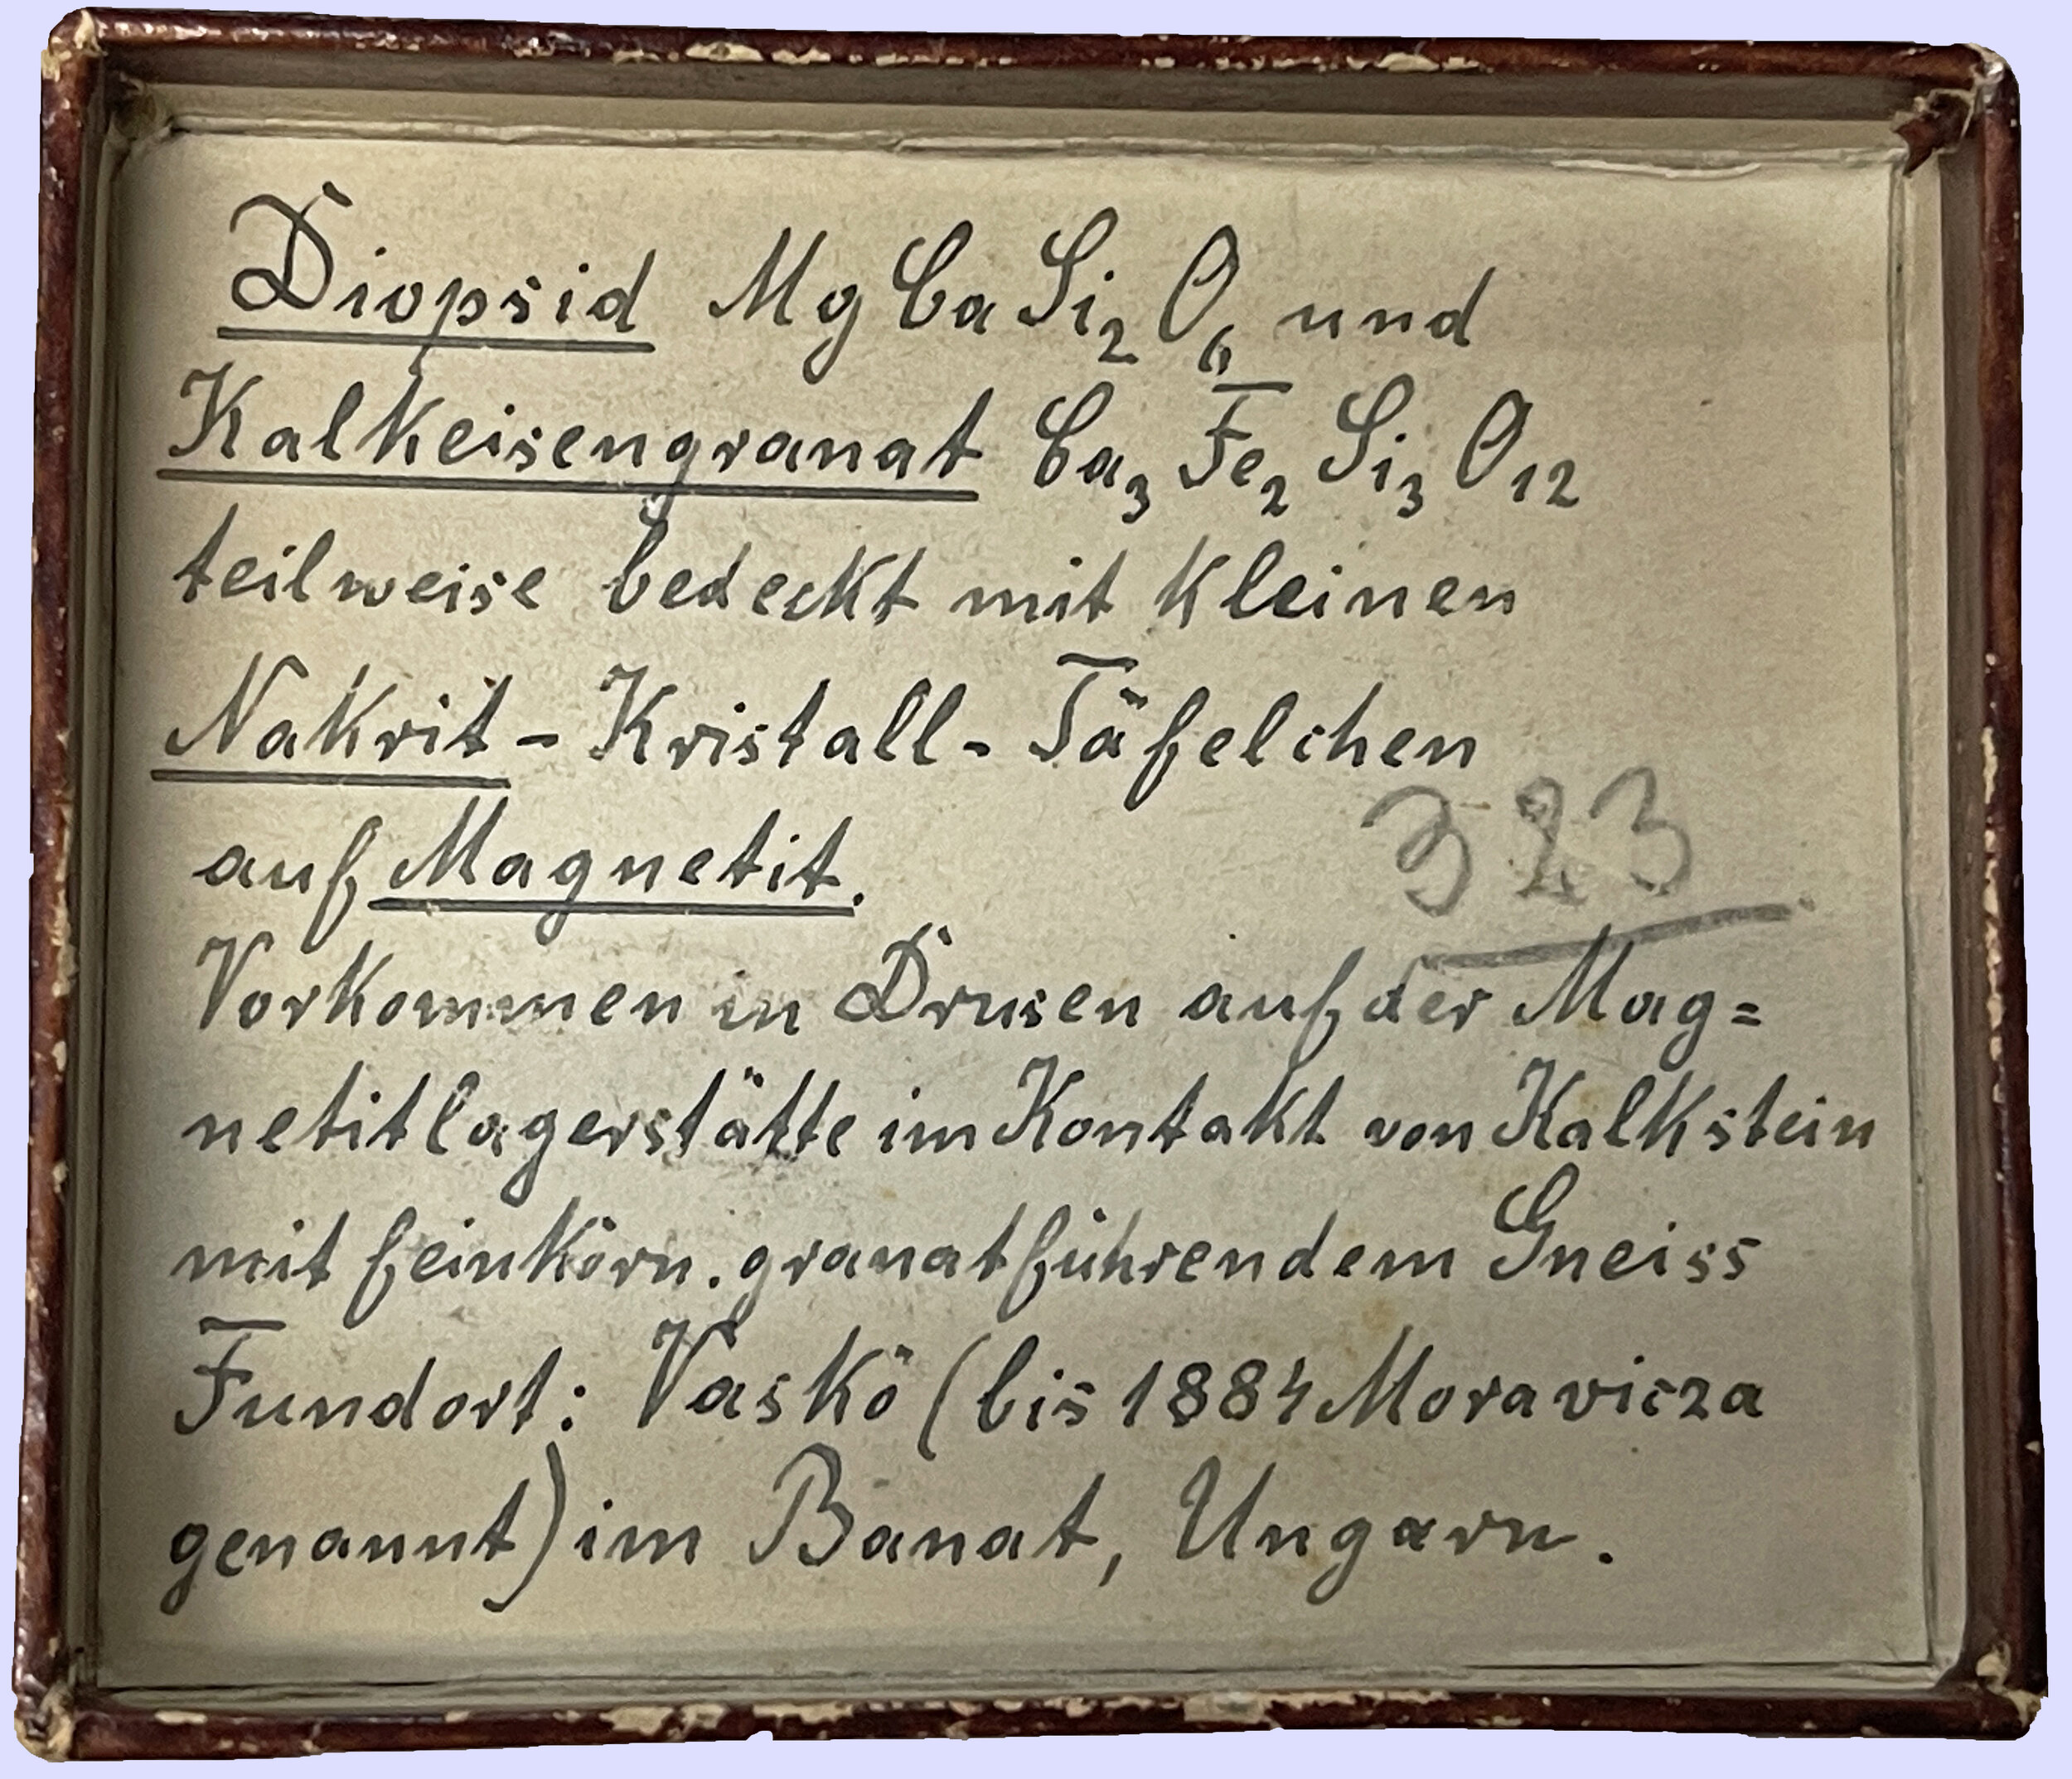 Diopsid MgCaSi₂O₆ und
Kalkeisengranat Ca₃Fe₂Si₃O₁₂
teilweise bedeckt mit kleinen
Nakrit-Kristall-Täfelchen
auf Magnetit.
323
Vorkommen in Drusen auf der Mag=
netitlagerstätte im Kontakt von Kalkstein
mit feinkörn. granatführendem Gneiss
Fundort: Vaskö (bis 1884 Moravicza
genannt) im Banat, Ungarn.